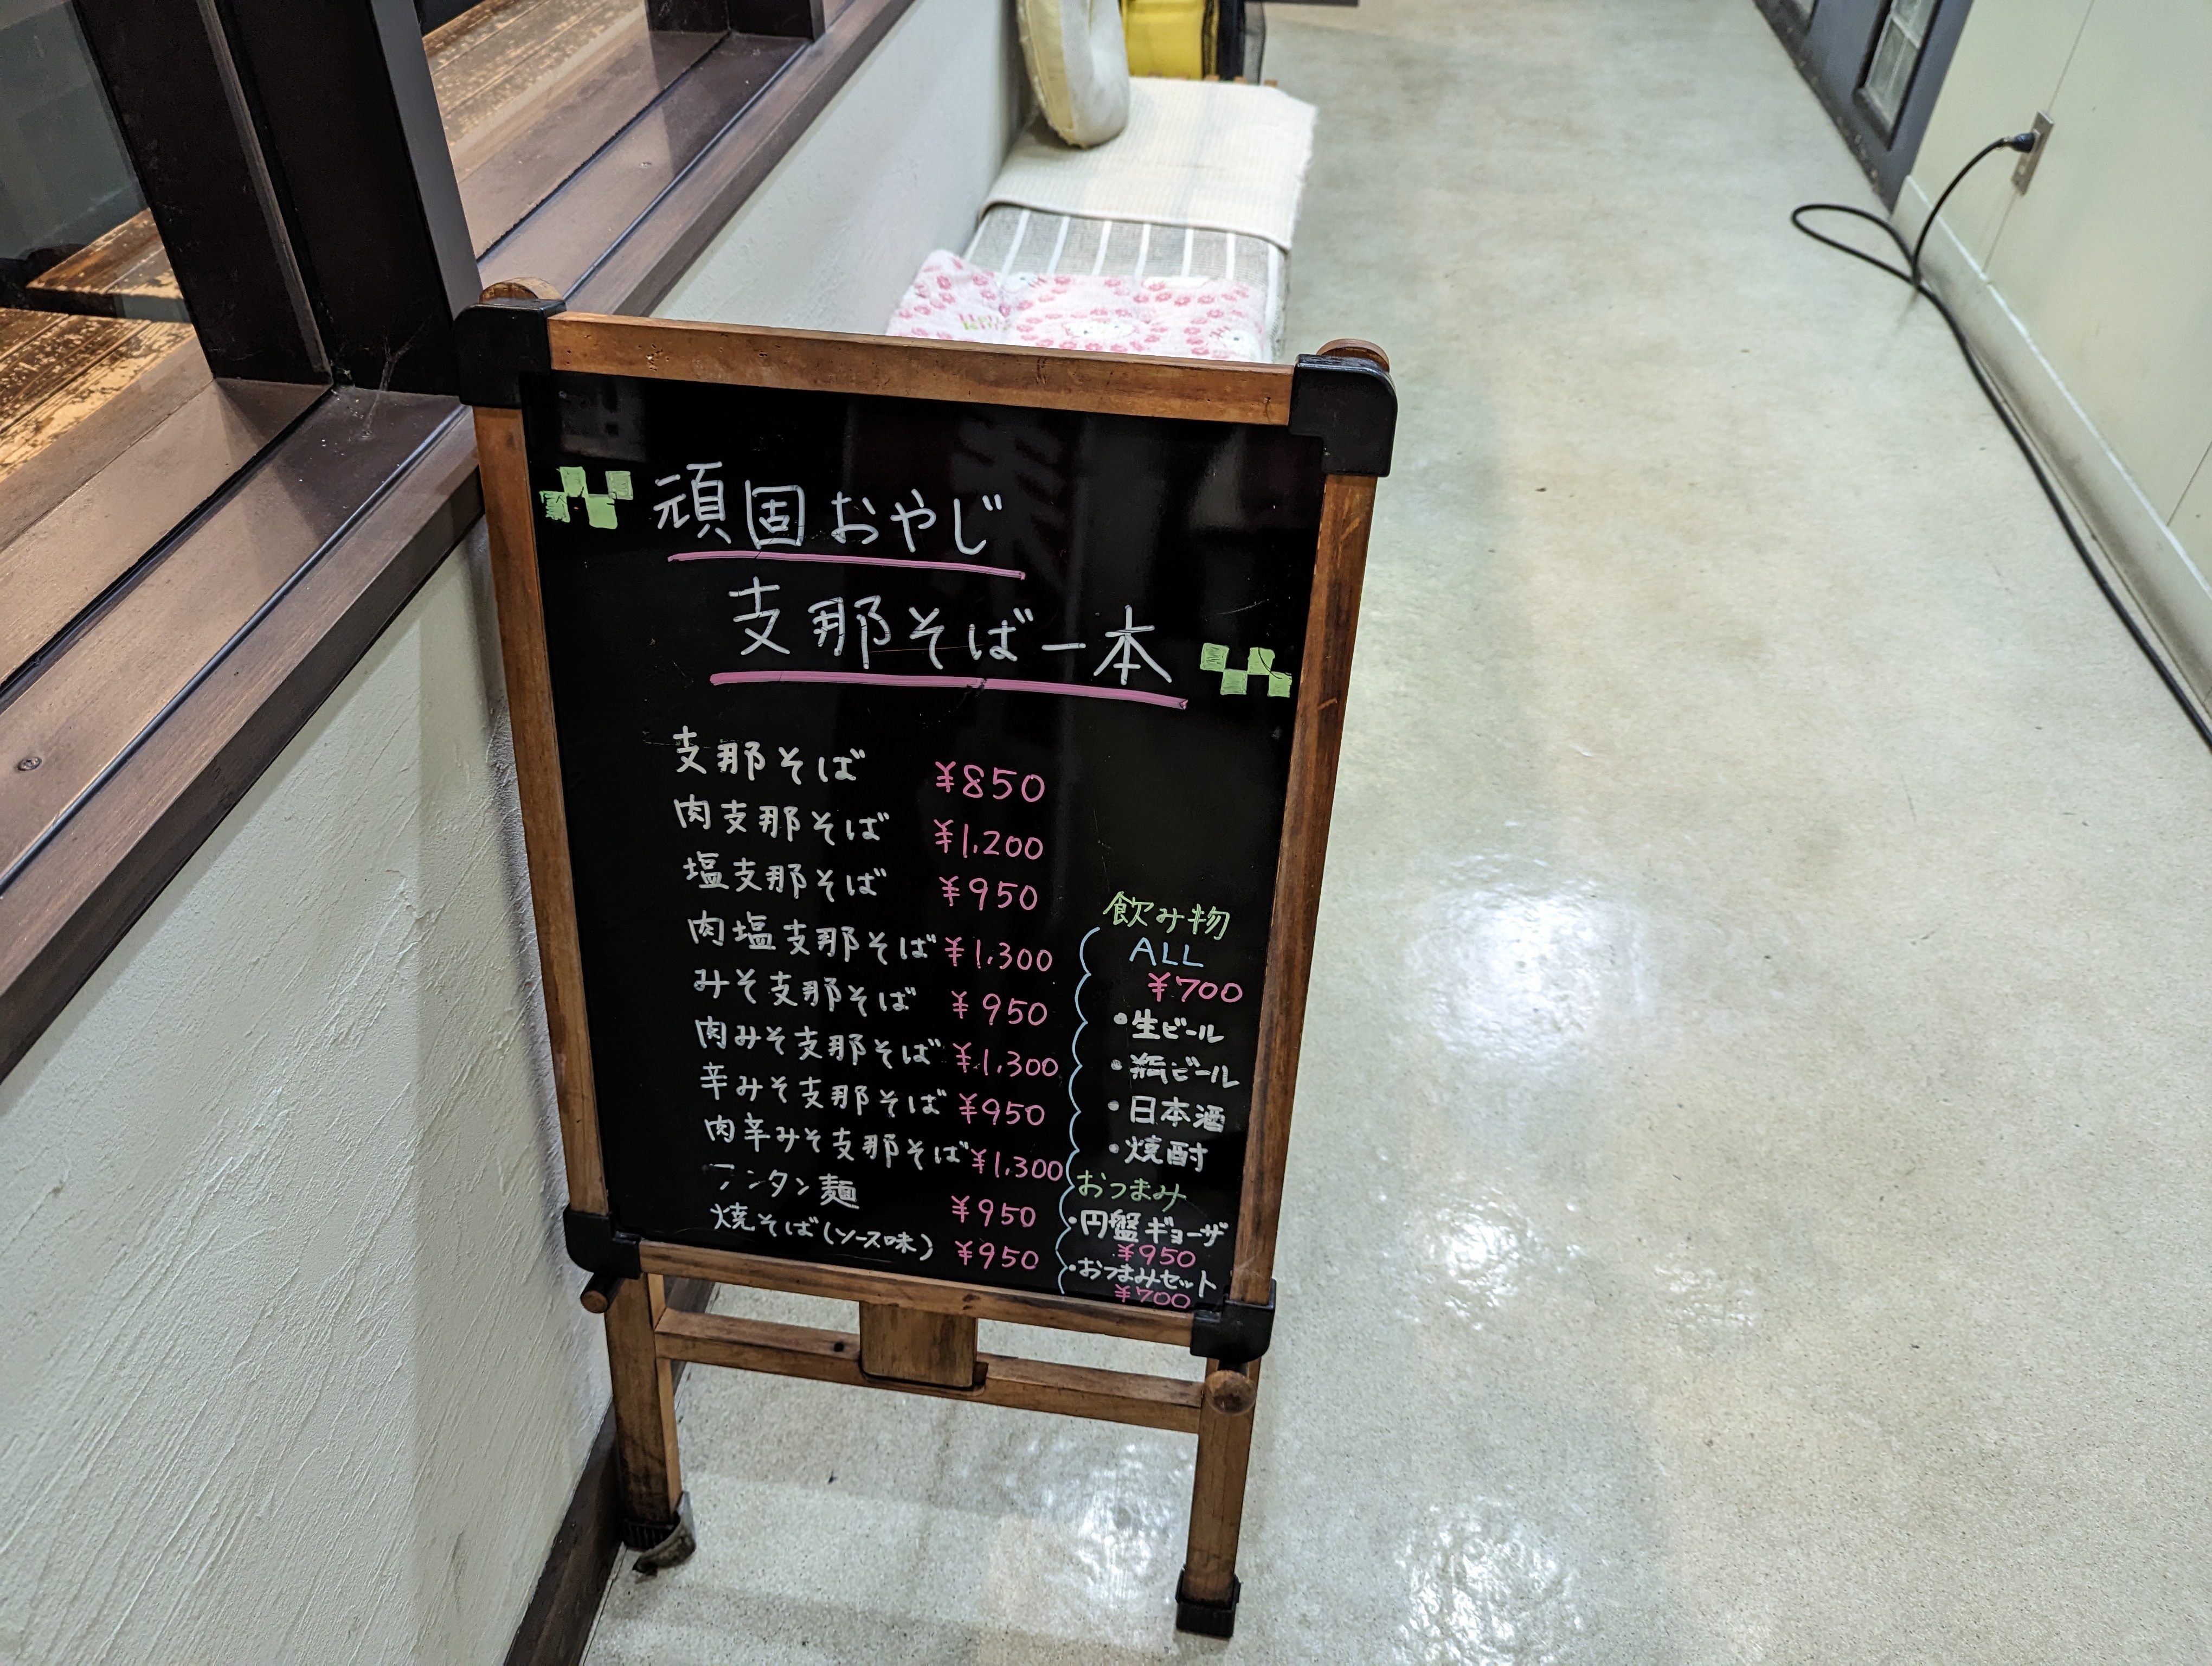 頑固おやじ
支那そば一本
支那そば ¥850
肉支那そば ¥1,200
塩支那そば ¥950
肉塩支那そば ¥1,300
みそ支那そば ¥950
肉みそ支那そば ¥1,300
辛みそ支那そば ¥950
肉辛みそ支那そば ¥1,300
麺 ¥950
焼そば(ソース味) ¥950
飲み物
ALL
¥700
・生ビール
・瓶ビール
・日本酒
・焼酎
おつまみ
・円盤ギョーザ
¥950
・おつまみセット
¥700